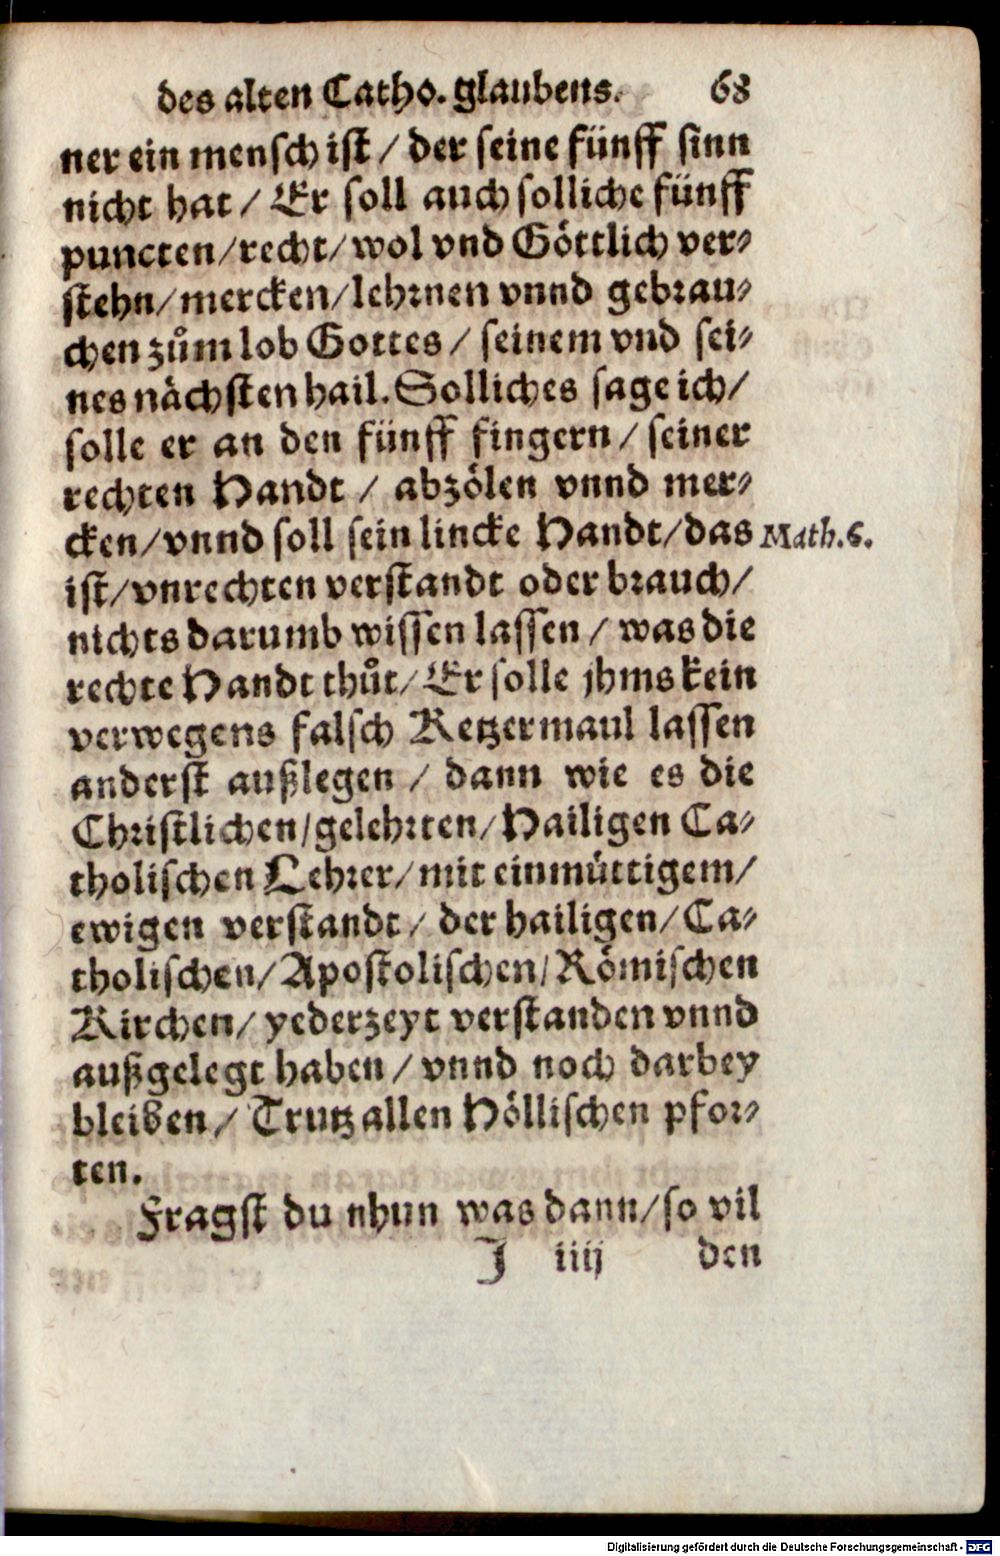 des alten Catho. glaubens. 68
ner ein mensch ist / der seine fünff sinn
nicht hat / Er soll auch solliche fünff
puncten/recht/wol vnd Göttlich ver-
stehn/mercken/lehrnen vnnd gebrau-
chen zům lob Gottes / seinem vnd sei-
nes nächsten hail. Solliches sage ich/
solle er an den fünff fingern / seiner
rechten Handt / abzölen vnnd mer-
cken/vnnd soll sein lincke Handt/das Math.6.
ist/vnrechten verstandt oder brauch/
nichts darumb wissen lassen / was die
rechte Handt thůt/Er solle jhms kein
verwegens falsch Ketzermaul lassen
anderst außlegen / dann wie es die
Christlichen/gelehrten/Hailigen Ca-
tholischen Lehrer/mit einmüttigem/
ewigen verstandt / der hailigen/Ca-
tholischen/Apostolischen/Römischen
Kirchen/yederzeyt verstanden vnnd
außgelegt haben / vnnd noch darbey
bleiben/ Trutz allen Höllischen pfor-
ten.
Fragst du nhun was dann/so vil
J iiij den
Digitalisierung gefördert durch die Deutsche Forschungsgemeinschaft - DFG